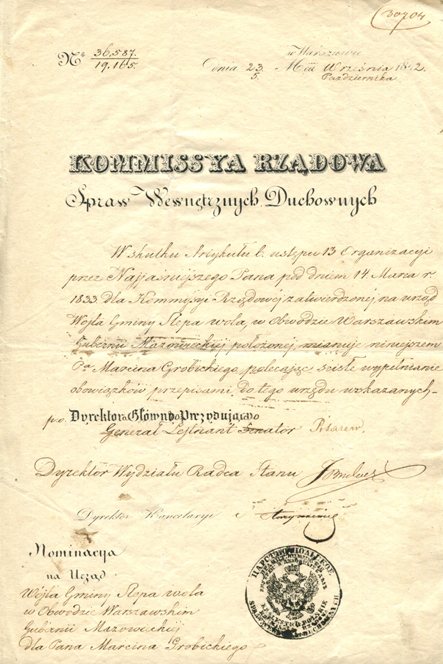 30704
w Warszawie
Nº 36,587. / 19.165. Dnia 23/5. M'ca Września 1842.
Października
KOMMISSYA RZĄDOWA
Spraw Wewnętrznych Duchownych
W skutku Artykułu 6. ustępu 13 Organizacyi
przez Najjaśniejszego Pana pod dniem 14 Marca r.
1833 dla Kommyssyi Rządowéj zatwierdzonéj na urząd
Wójta Gminy Slepa wola, w Obwodzie Warszawskim
Gubernii Mazowieckiéj położonéj mianuje niniejszem
Pa Marcina Grobickiego, polecając ścisłe wypełnianie
obowiązków przepisami, do tego urzędu wskazanych
p.o. Dyrektor Główny Prezydujący
Generał Lejtnant Senator Pisarew.
Dyrektor Wydziału Radca Stanu
Dyrektor Kancelaryi
Nominacja
na Urząd
Wójta Gminy Slepa wola
w Obwodzie Warszawskim
Gubernii Mazowieckiéj
dla Pana Marcina Grobickiego
ЦАРСТВО ПОЛЬСКОЕ